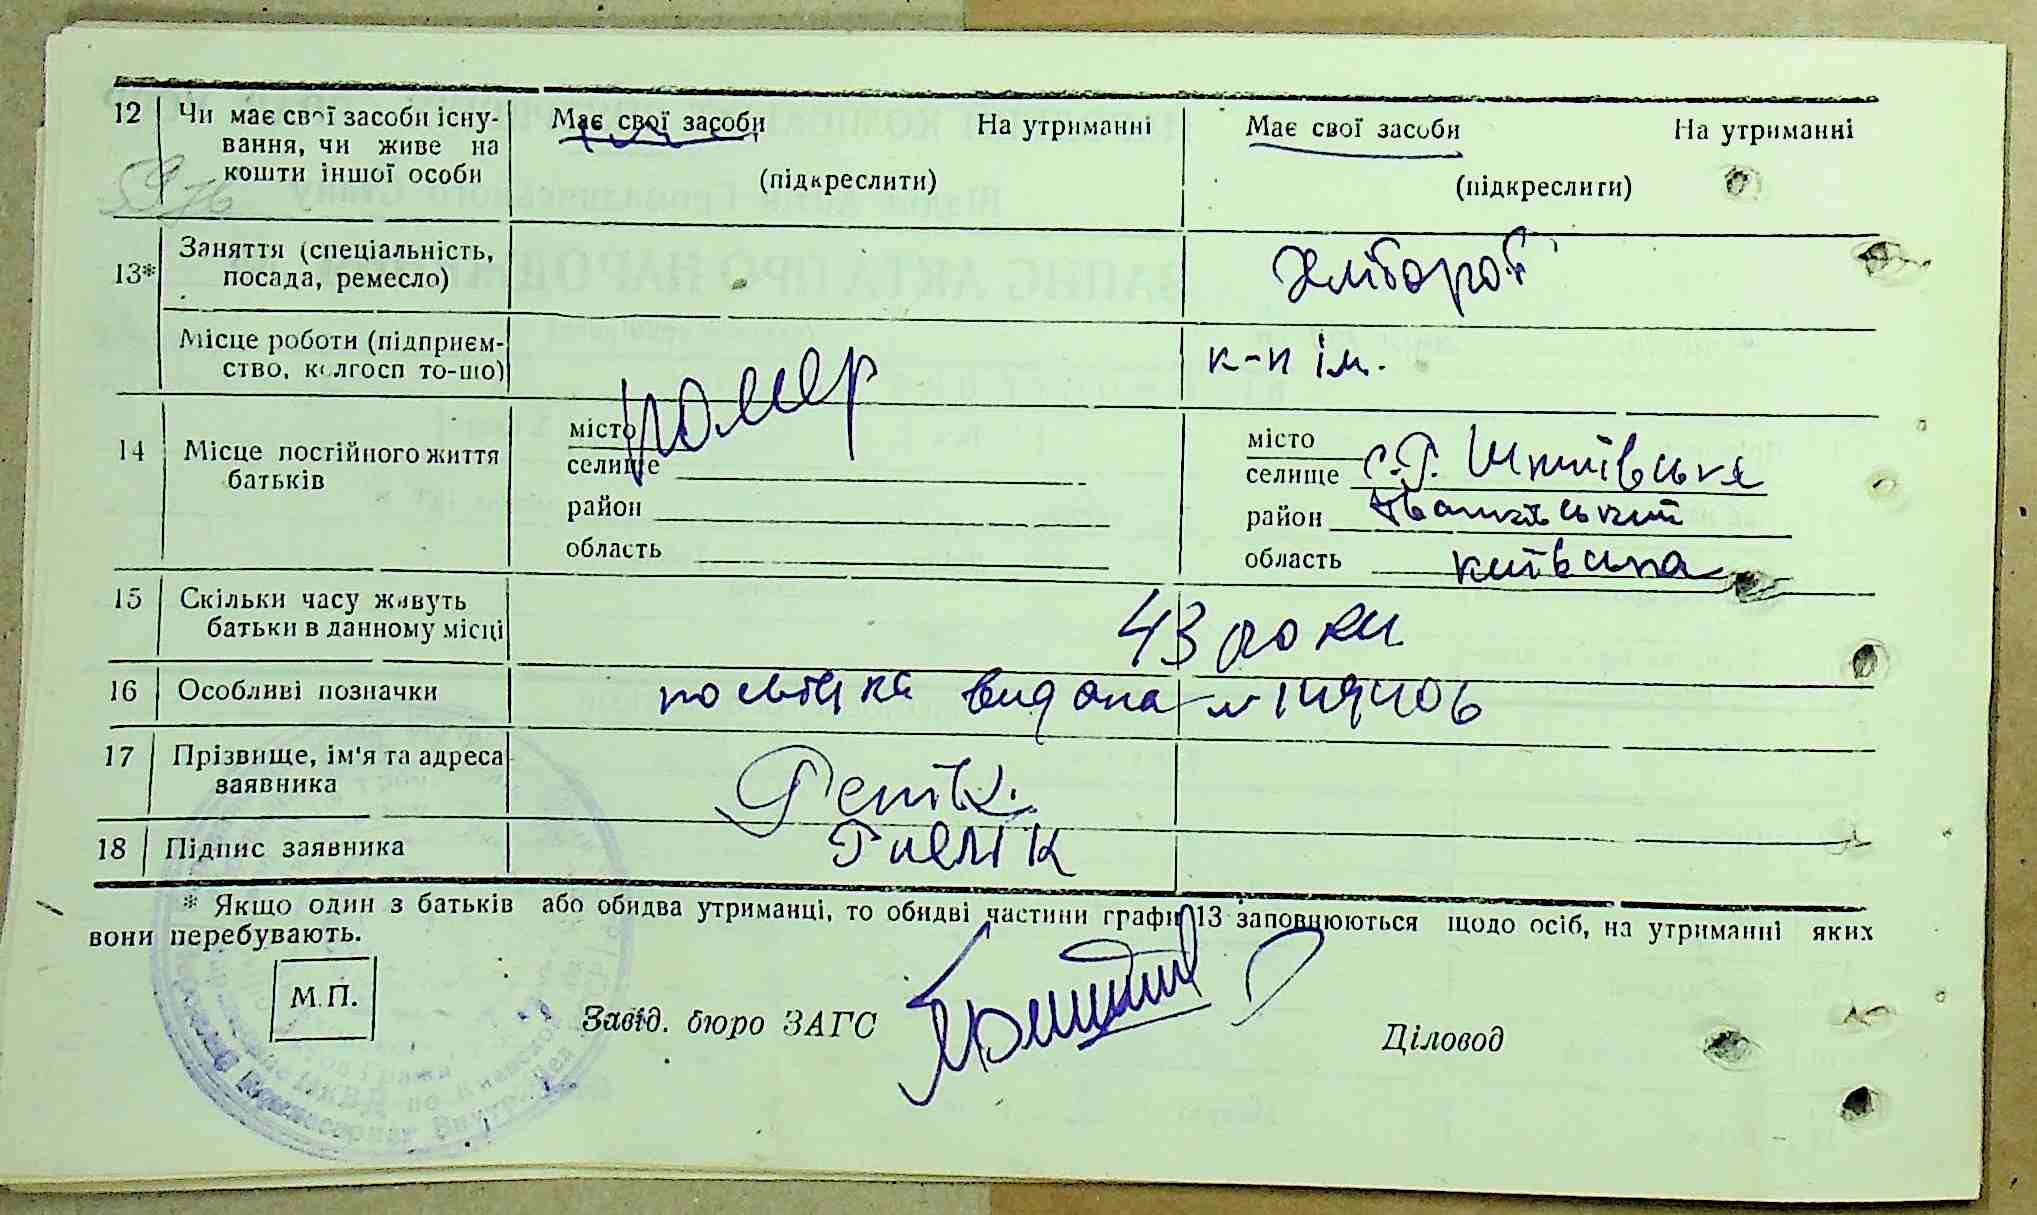 12 Чи має свої засоби існу- Має свої засоби На утриманні Має свої засоби На утриманні
вання, чи живе на
кошти іншої особи (підкреслити) (підкреслити)
13* Заняття (спеціальність, хлібороб
посада, ремесло)
Місце роботи (підприєм- к-п ім.
ство, колгосп то-що)
помер
14 Місце постійного життя місто місто
батьків селище селище с.
район район
область область київська
15 Скільки часу живуть 43 роки
батьки в данному місці
16 Особливі позначки видана № 149406
17 Прізвище, ім'я та адреса
заявника
18 Підпис заявника
* Якщо один з батьків або обидва утриманці, то обидві частини графи 13 заповнюються щодо осіб, на утриманні яких
вони перебувають.
М.П. Завід. бюро ЗАГС Діловод